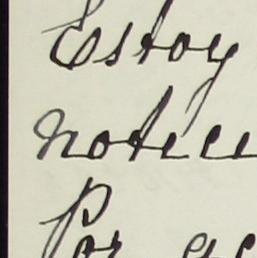 Estoy
notici
Por